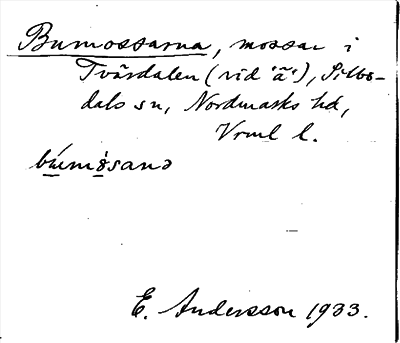 Bumossarna, mossar i
Tvärdalen (vid 'ã'), Silbo-
dals sn, Nordmarks hd,
Vrml l.
búmòsanə
E. Andersson 1933.